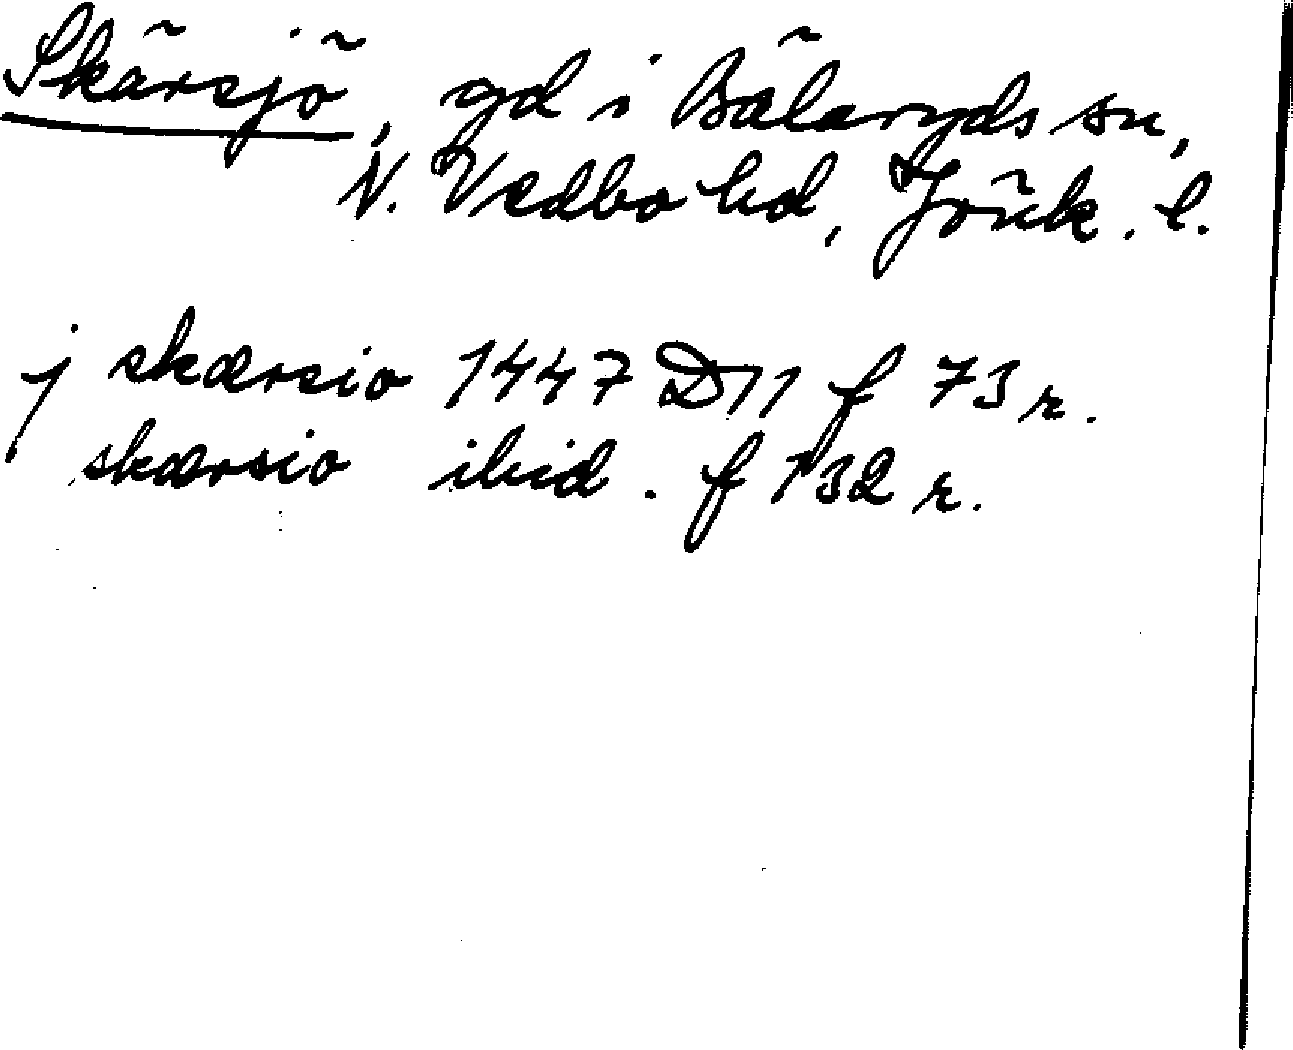 Skärsjö, gd i Bälaryds sn,
N. Vedbo hd, Jönk. l.
j skærsio 1447 D11 f 73 r.
skærsio ibid. f 132 r.